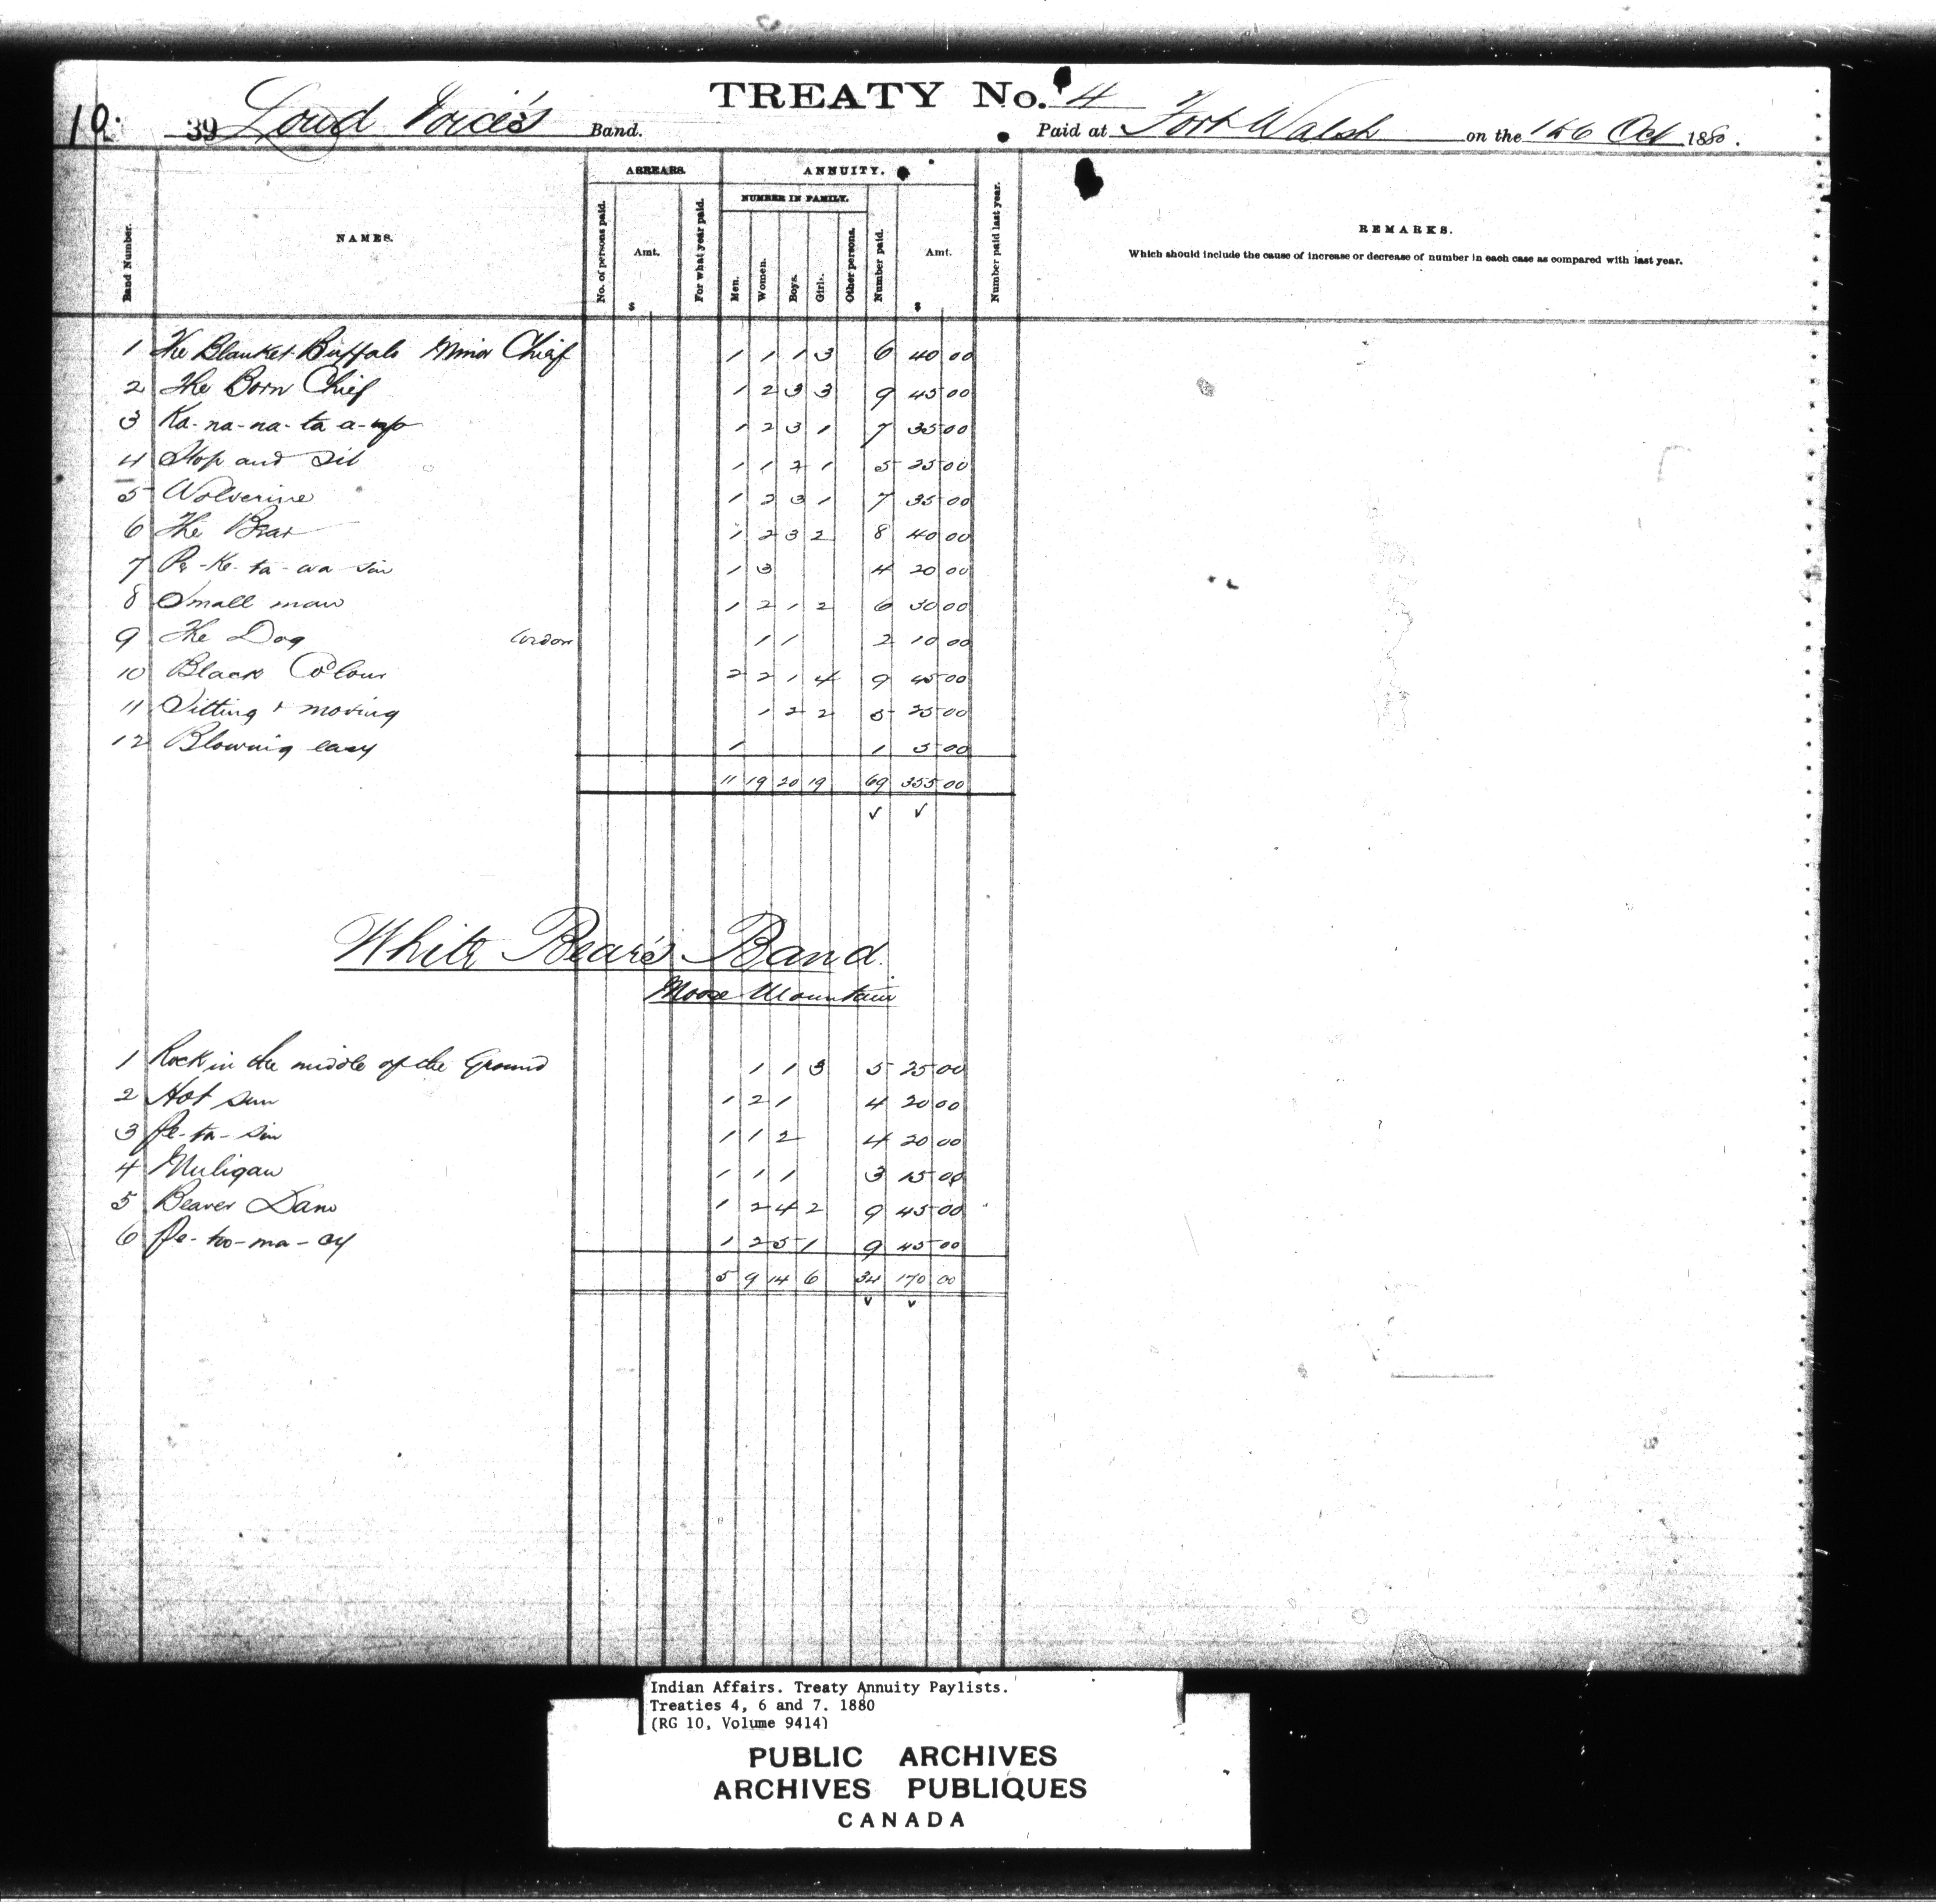 TREATY No. 4
10. 39 Loud Voice's Band. Paid at Fort Walsh on the Oct 1880.
Band Number. NAMES. ARREARS. ANNUITY. Number paid last year. REMARKS.
NUMBER IN FAMILY.
No. of persons paid. Amt. For what year paid. Men. Women. Boys. Girls. Other persons. Number paid. Amt. Which should include the cause of increase or decrease of number in each case as compared with last year.
$ $
1 The Blanket Buffalo Minor Chief 1 1 1 3 6 40 00
2 The Born Chief 1 2 3 3 9 45 00
3 Ka-na-na-ta-a- 1 2 3 1 7 35 00
4 Stop and Sit 1 1 2 1 5 25 00
5 Wolverine 1 2 3 1 7 35 00
6 The Bear 1 2 3 2 8 40 00
7 Pe-ke-ta-wa-sin 1 3 4 20 00
8 Small man 1 2 1 2 6 30 00
9 The Dog 1 1 2 10 00
10 Black Colour 2 2 1 4 9 45 00
11 Sitting & moving 1 2 2 5 25 00
12 Blowing easy 1 1 5 00
11 19 20 19 69 355 00
White Bear's Band.
Moose Mountain
1 Rock in the middle of the Ground 1 1 3 5 25 00
2 Hot sun 1 2 1 4 20 00
3 Pe-ta-sin 1 1 2 4 20 00
4 Muligan 1 1 1 3 15 00
5 Beaver Dam 1 2 4 2 9 45 00
6 Pe-too-ma-cy 1 2 5 1 9 45 00
5 9 14 6 34 170 00
Indian Affairs. Treaty Annuity Paylists.
Treaties 4, 6 and 7. 1880
(RG 10, Volume 9414)
PUBLIC ARCHIVES
ARCHIVES PUBLIQUES
CANADA